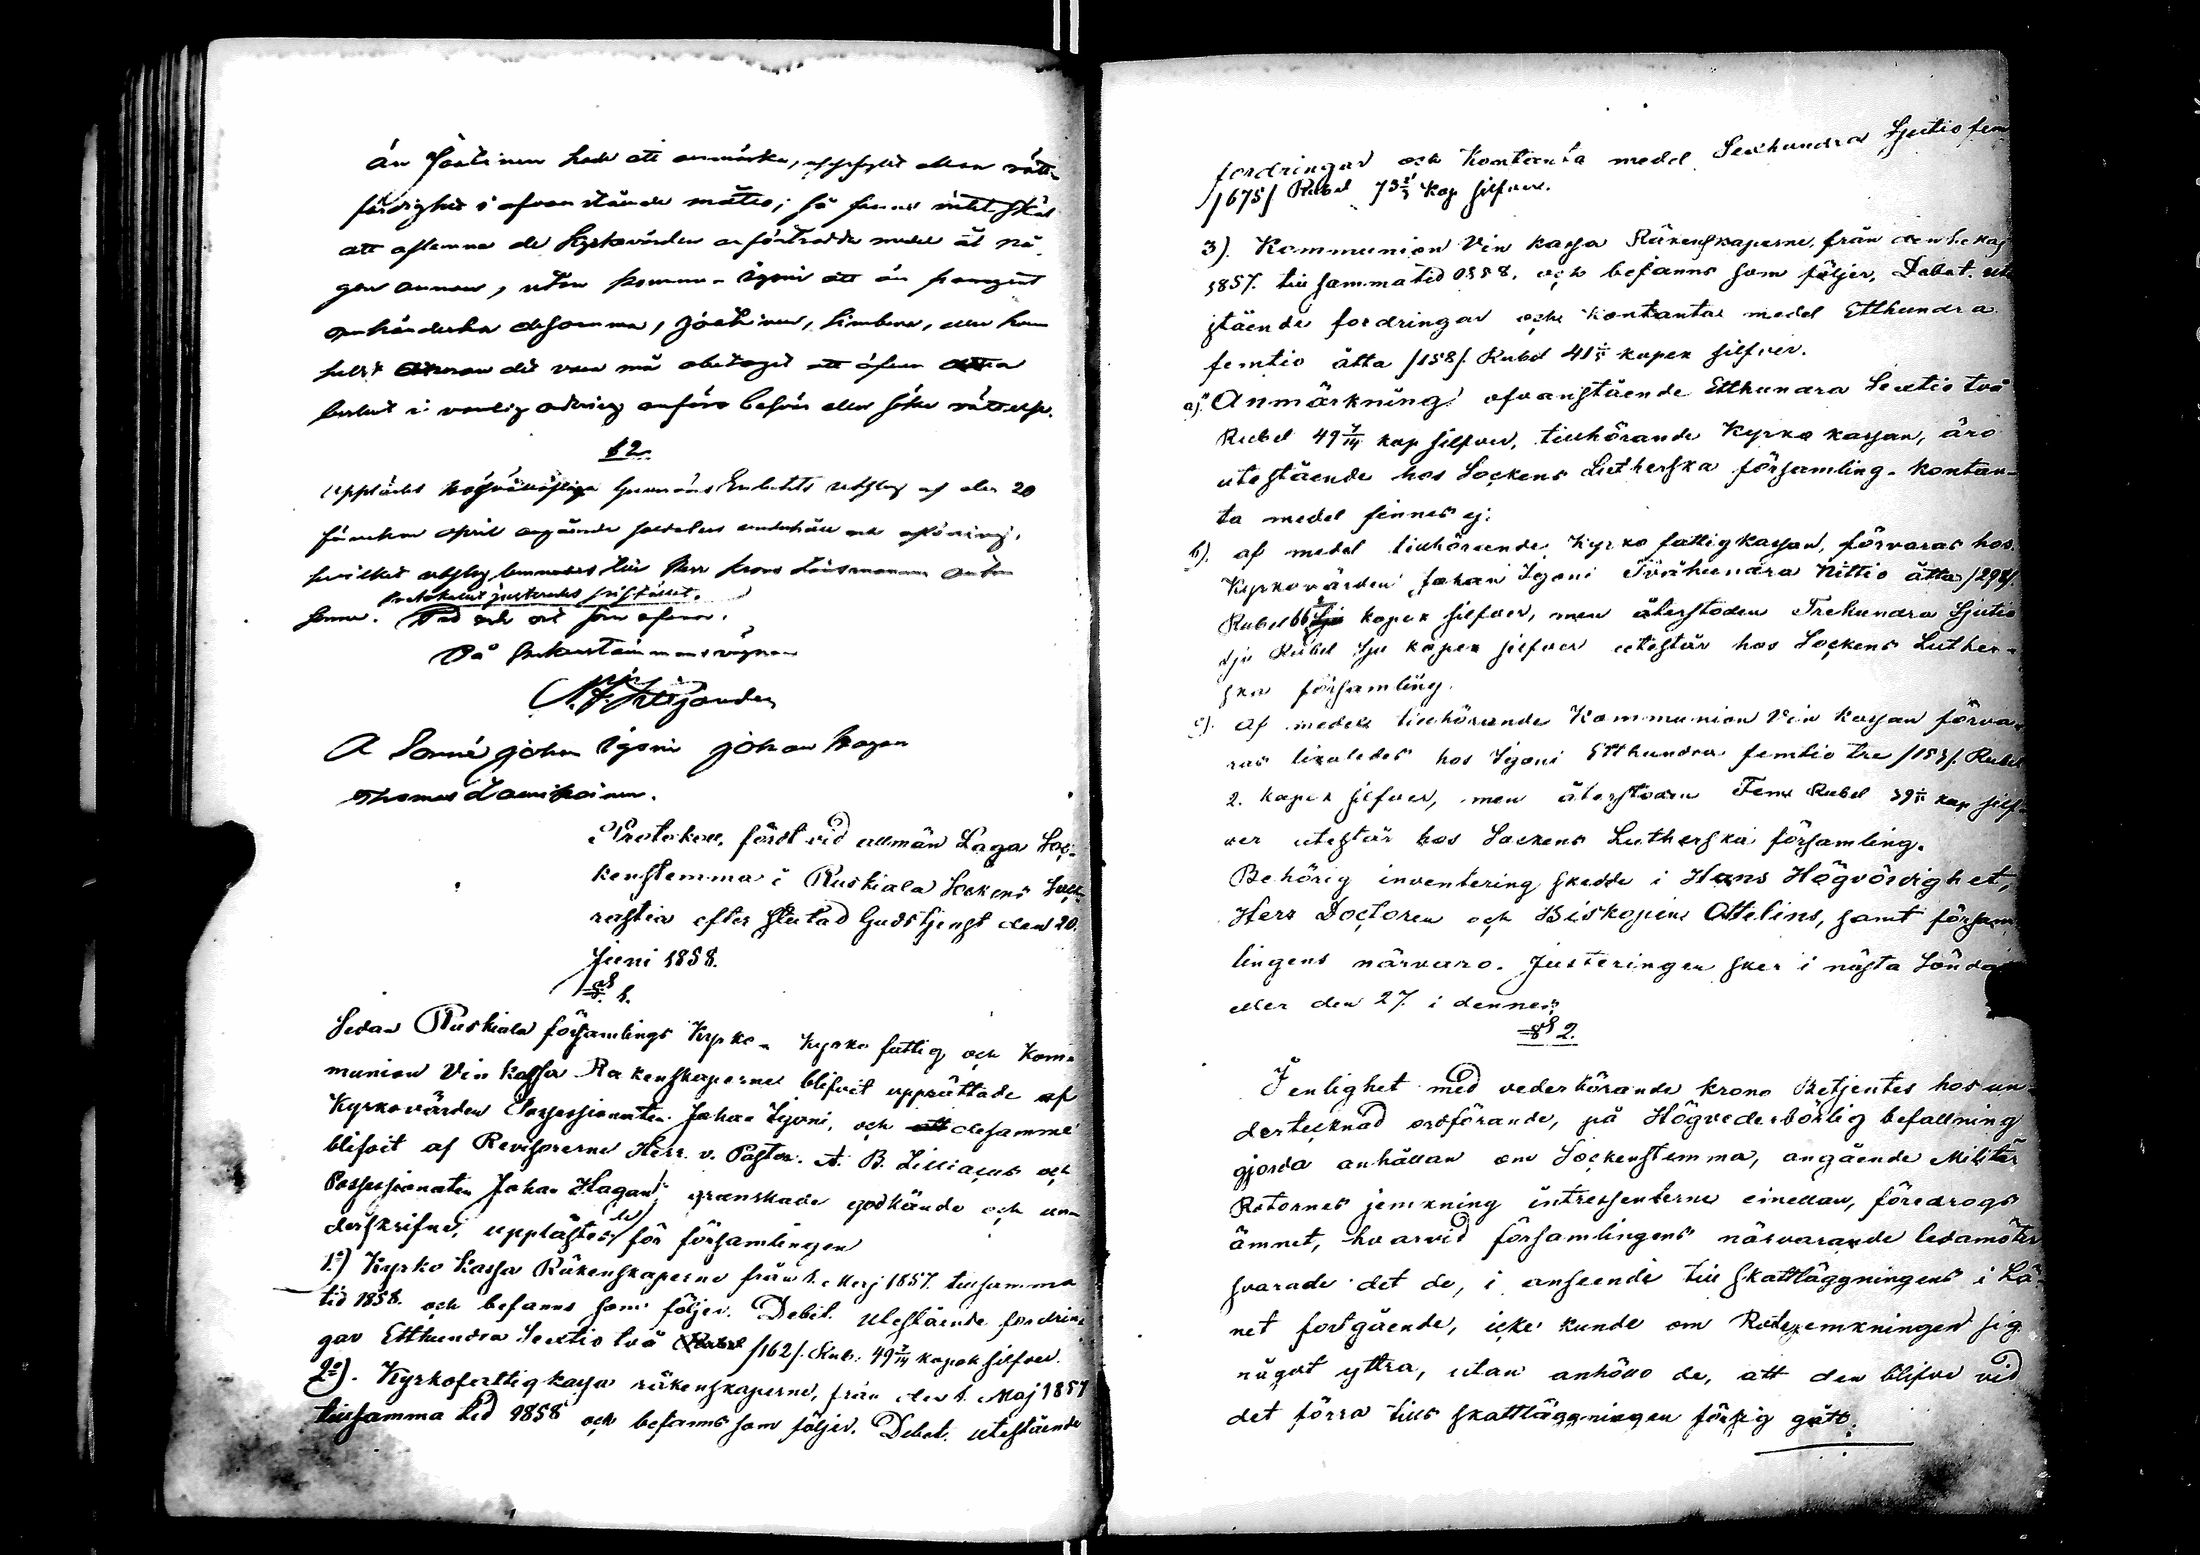 än Joutinen hade att anmärka, uppfyllt allan rätt-
färdighet i ofvanstående måtto; så finnes intet skäl
att aflemna de Kyrkovärden anförtrodda medel åt nå
gon annan, utan kommer Igoni att än framgent
omhänderha desamma, Joutinen, Simbena, eller hvem
helst det vara må obetaget att öfver detta
beslut i vanlig ordning anföra besvär eller söka rättelse.
§ 2.
Upplästes Högvälloflige Guvernörs Embetets utslag af den 20
sistledne april angående soldaters underhåll och aflöning,
hvilket utslag lemnades till Herr Krono Länsmannen Anton
Protokollet justerades sistället.
Sonne. Tid och ort som ofvan.
På Sockenstämmans vägnar
A Sonné johan Igoni johan Hagan
Thomas Laurikainen.
Protokoll, fördt vid allmän Laga Soc-
kenstemma i Ruskiala Sockens Sack-
rastia efter slutad Gudstjenst den 20.
Juni 1858.
§ 1.
Sedan Ruskiala församlings Kyrko- Kyrko fattig och Kom-
munion Vin kassa Räkenskaperne blifvit upprättade af
Kyrkovärden Possessionaten Johan Igoni, och att desamme
blifvit af Revisorerne Herr v. Pastor. A. B. Lilliacus och
Possessionaten Johan Hagan; granskade godkände och un-
derskrifne, upplästes de för församlingen
1:o) Kyrko Kassa Räkenskaperne från 1. Maj 1857. till samma
tid 1858. och befanns som följer. Debet. Utestående fordrin-
gar Etthundra Sextio två Rubel /162/. Rub: 49 7/14 kopek silfver.
2:o). Kyrkofattigkassa räkenskaperne, från den 1. Maj 1857
till samma tid 1858 och befanns som följer. Debet. utestående
fordringar och Kontanta medel Sexhundra Sjutio fem
/675/ Rubel 73 2/7 Kop silfver.
3). Kommunion Vin kassa Räkenskaperne, från den 1. Maj
1857. till samma tid 1858. och befanns som följer, Debet. ute
stående fordringar och kontanta medel Etthundra
femtio åtta /158/. Rubel 41 kopek silfver.
a). Anmärkning: ofvanstående Etthundra Sextio två
Rubel 49 7/14 kop silfver, tillhörande Kyrko kassan, äro
utestående hos Sockens Lutherska församling. Kontan-
ta medel finnes ej.
b). af medel tillhörande Kyrko fattigkassan, förvaras hos
Kyrkovärden Johan Igoni Tvåhundra Nittio åtta /298/.
Rubel 66 kopek silfver, men återstoden Trehundra Sjutio
sju Rubel Sju kopek silfver utestår hos Sockens Luther-
ska församling.
c). af medel tillhörande Kommunion Vin kassan förva-
ras likaledes hos Igoni Etthundra femtio tre /153/. Rubel
2. kopek silfver, men återstoden Fem Rubel 39 kop silf-
ver utestår hos Sockens Lutherska församling.
Behörig inventering skedde i Hans Högvördighet,
Herr Doctoren och Biskopens Ottelins, samt försam-
lingens närvaro. Justeringen sker i nästa Söndag
eller den 27. i dennes.
§ 2.
I enlighet med vederbörande krono Betjentes hos un-
dertecknad ordförande, på Högvederbörlig befallning
gjorda anhållan om Sockenstemma, angående Militär
Rotornes jemkning intressenterne emellan, föredrogs
ämnet, hvarvid församlingens närvarande ledamöter
svarade det de, i anseende till skattläggningens i Lä-
net fortgående, icke kunde om Rotejemkningen sig
något yttra, utan anhöllo de, att den blifver vid
det förra tills skattläggningen försig gått.